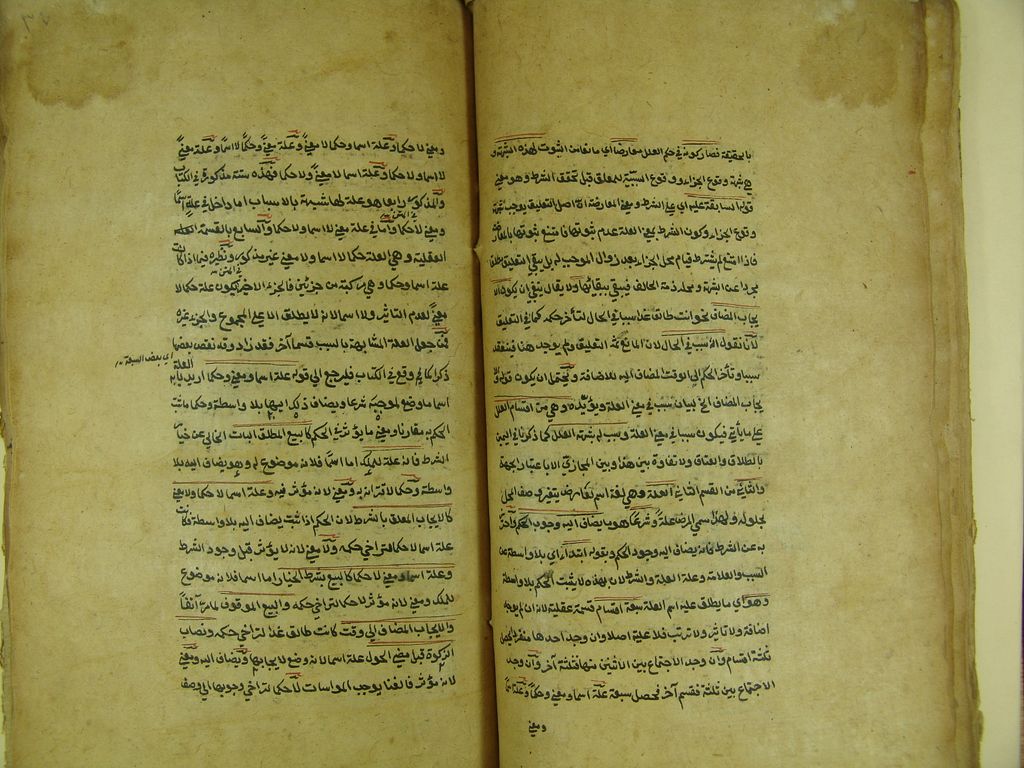 بالحقيقة فصار كونه في حكم العلل معارضا اي مانعا من الثبوت لهذه الشبهة و
هي شبهة وقوع الجزاء ووقوع السببية للمعلق قبل تحقق الشرط وهو معنى
قوله السابقة عليه اي على الشرط ومعنى المعارضة ان اصل التعليق يوجب شبهة
وقوع الجزاء وكون الشرط بمعنى العلة عدم ثبوتها فامتنع ثبوتها بالمعارضة
فاذا امتنع لم يشترط قيام محل الجزاء بعد زوال الموجب له بل يبقى التعليق مطلقا
مجردا عن الشبهة ومحله ذمة الحالف فيبقى ببقائها ولا يقال ينبغي ان يكون الا
يجاب المضاف نحو انت طالق غدا سببا في الحال لتأخر حكمه كما في التعليق
لانا نقول الاسبب في الحال لان المانع ثمة التعليق ولم يوجد هنا فينعقد
سببا وتأخر الحكم الى الوقت المضاف اليه للاضافة ويحتمل ان يكون قوله والا
يجاب المضاف الخ بيان سبب في معنى العلة ويؤيده وهي من اقسام العلل
على ما يأتي فيكون سببا في معنى العلة وسبب له شبهة العلل كما ذكرنا في اليمين
بالطلاق والعتاق ولا تفاوة بين هذا وبين المجازي الا باعتبار الجهة
والثاني من القسم الثاني العلة وهي لغة اسم لعارض يتغير وصف المحل
بحلوله ولهذا سمي المرض علة وشرعا هو ما يضاف اليه وجوب الحكم واحترز
به عن الشرط فانه يضاف اليه وجود الحكم وبقوله ابتداء اي بلا واسطة عن
السبب والعلامة وعلة العلة والشرط لان بهذه لا يثبت الحكم بلا واسطة
وهو اي ما يطلق عليه اسم العلة سبعة اقسام قسمة عقلية لانه ان لم يوجد
اضافة ولا تاثير ولا ترتب فلا علية اصلا وان وجد احدها منفردا يحصل
ثلثة اقسام وان وجد الاجتماع بين الاثنين منها فثلثة آخر وان وجد
الاجتماع بين ثلثة فقسم آخر فحصل سبعة علة اسما ومعنى وحكما وعلة اسما
ومعنى
ومعنى لا حكما وعلة اسما وحكما لا معنى وعلة معنى وحكما لا اسما وعلة معنى
لا اسما ولا حكما وعلة اسما لا معنى ولا حكما فهذه ستة مذكورة في الكتاب
والمذكور رابعا هو علة لها شبهة بالاسباب اما داخل في علة اسما
ومعنى لا حكما واما في علة معنى لا اسما ولا حكما والسابع بالقسمة
العقلية وهي العلة حكما لا اسما ولا معنى غير مذكورة ونظيره فيما اذا كانت
علة اسما وحكما وهي مركبة من جزئين فالجزء الاخير يكون علة حكما لا
معنى لعدم التاثير ولا اسما لانه لا يطلق الا على المجموع والجزء غيره
فمن جعل العلة المشابهة بالسبب قسما آخر فقد زاد وقد نقص بعضها
اي بعض السبعة
العلة
ذكرا كما وقع في الكتاب فليرجع الى قوله علة اسما ومعنى وحكما اريد بالـ
اسما ما وضع لموجبه شرعا ويضاف ذلك اليها بلا واسطة وحكما ما ثبت
الحكم به مقارنا ومعنى ما يؤثر في الحكم كالبيع المطلق البات الخالي عن خيار
الشرط فانه علة للملك اما اسما فلانه موضوع له وهو يضاف اليه بلا
واسطة وحكما لاقترانه به ومعنى لانه مؤثر فيه وعلة اسما لا حكما ولا معنى
كالايجاب المعلق بالشرط لان الحكم اذا ثبت يضاف اليه بلا واسطة فكانت
علة اسما لا حكما لتراخي حكمه ولا معنى لانه لا يؤثر قبل وجود الشرط
وعلة اسما ومعنى لا حكما كالبيع بشرط الخيار اما اسما فلانه موضوع
للملك ومعنى لانه مؤثر لا حكما لتراخي حكمه والبيع الموقوف لما مر آنفا
والايجاب المضاف الى وقت كانت طالق غدا لتراخي حكمه ونصاب
الزكوة قبل مضي الحول علة اسما لانه وضع لايجابها ويضاف اليه ومعنى
لانه مؤثر فالغنا يوجب المواسات لا حكما لتراخي وجوبها الى وصف